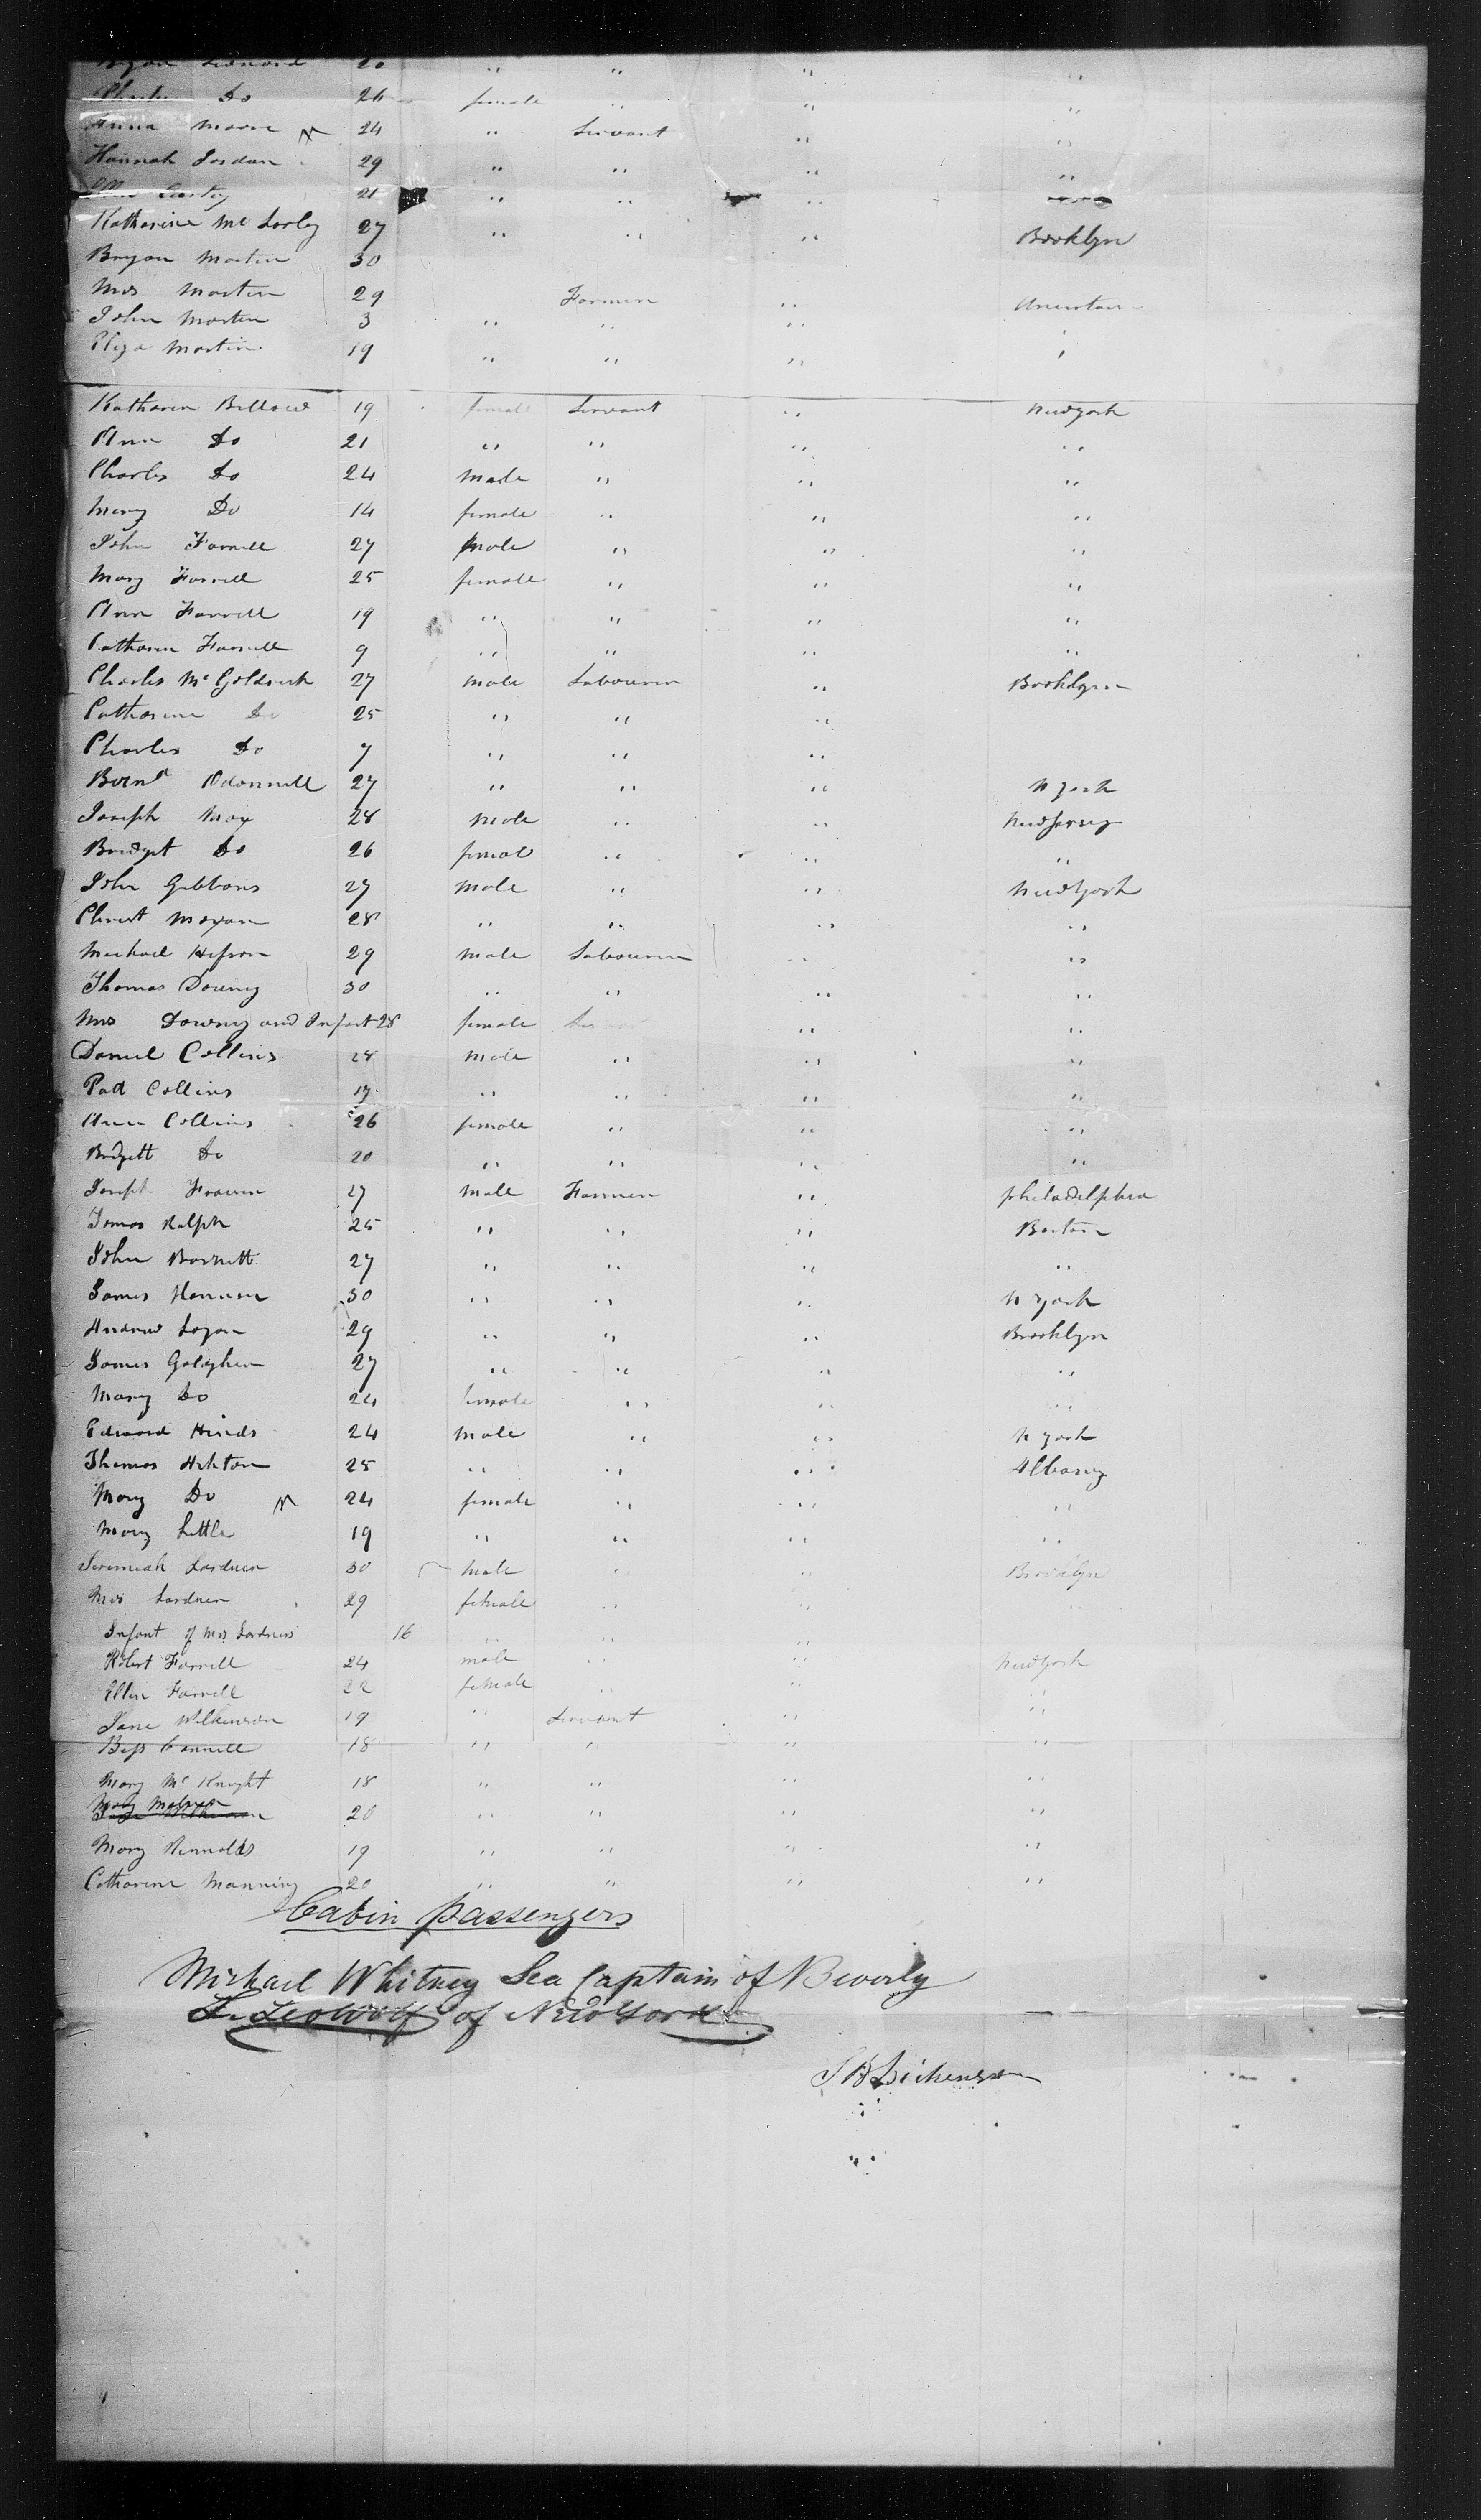 Bryan Leonard 20 " " " "
Do 26 female " " "
Anna Moore 24 " Servant " "
Hannah Jordan 29 " " " "
21 " " "
Katharine Mc Sorley 27 " " " Brooklyn
Bryan Martin 30
Mrs Martin 29 Farmer " Uncertain
John Martin 3 " " " "
Eliza Martin 19 " " " "
Katharen 19 female Servant " NewYork
Ann Do 21 " " " "
Charles Do 24 Male " " "
Mary Do 14 female " " "
John Farrell 27 Male " " "
Mary Farrell 25 female " " "
Ann Farrell 19 " " " "
Catharen Farrell 9 " " " "
Charles Mc Goldrick 27 Male Labourer " Brooklyn
Catharine Do 25 " " "
Charles Do 7 " " "
Bernd Odonnell 27 " " " N York
Joseph May 28 Male " " NewJersey
Bridget Do 26 femal " " "
John Gibbons 27 Male " " NewYork
Christ Moran 28 " " " "
Michael Hefron 29 Male Labourer " "
Thomas Downy 30 " " " "
Mrs Downy and Infant 28 female Servant " "
Daniel Collins 28 Male " " "
Pat Collins 17 " " " "
Ann Collins 26 female " " "
Bridgett Do 20 " " " "
Joseph 27 Male Farmer " philadelphia
James Ralph 25 " " " Boston
John Barnett 27 " " " "
James 30 " " " N York
Andrew Logan 29 " " " Brooklyn
James Golagher 27 " " " "
Mary Do 24 female " " "
Edward Hinds 24 Male " " N York
Thomas 25 " " " Albany
Mary Do 24 female " " "
Mary Little 19 " " " "
Jeremiah Lardner 30 Male " " Brooklyn
Mrs Lardner 29 female " " "
Infant of Mrs Lardners 16 " " "
Robert Farrell 24 male " " NewYork
Ellen Farrell 22 female " " "
Jane Wilkinson 19 " Servant " "
Bess Connell 18 " " " "
Mary Mc Knight 18 " " " "
Mary 20 " " " "
Mary Rennolds 19 " " " "
Catharine Manning 20 " " " "
Cabin passengers
Michael Whitney Sea Captain of Beverly
L. Leowolf of New York
S B Dickenson